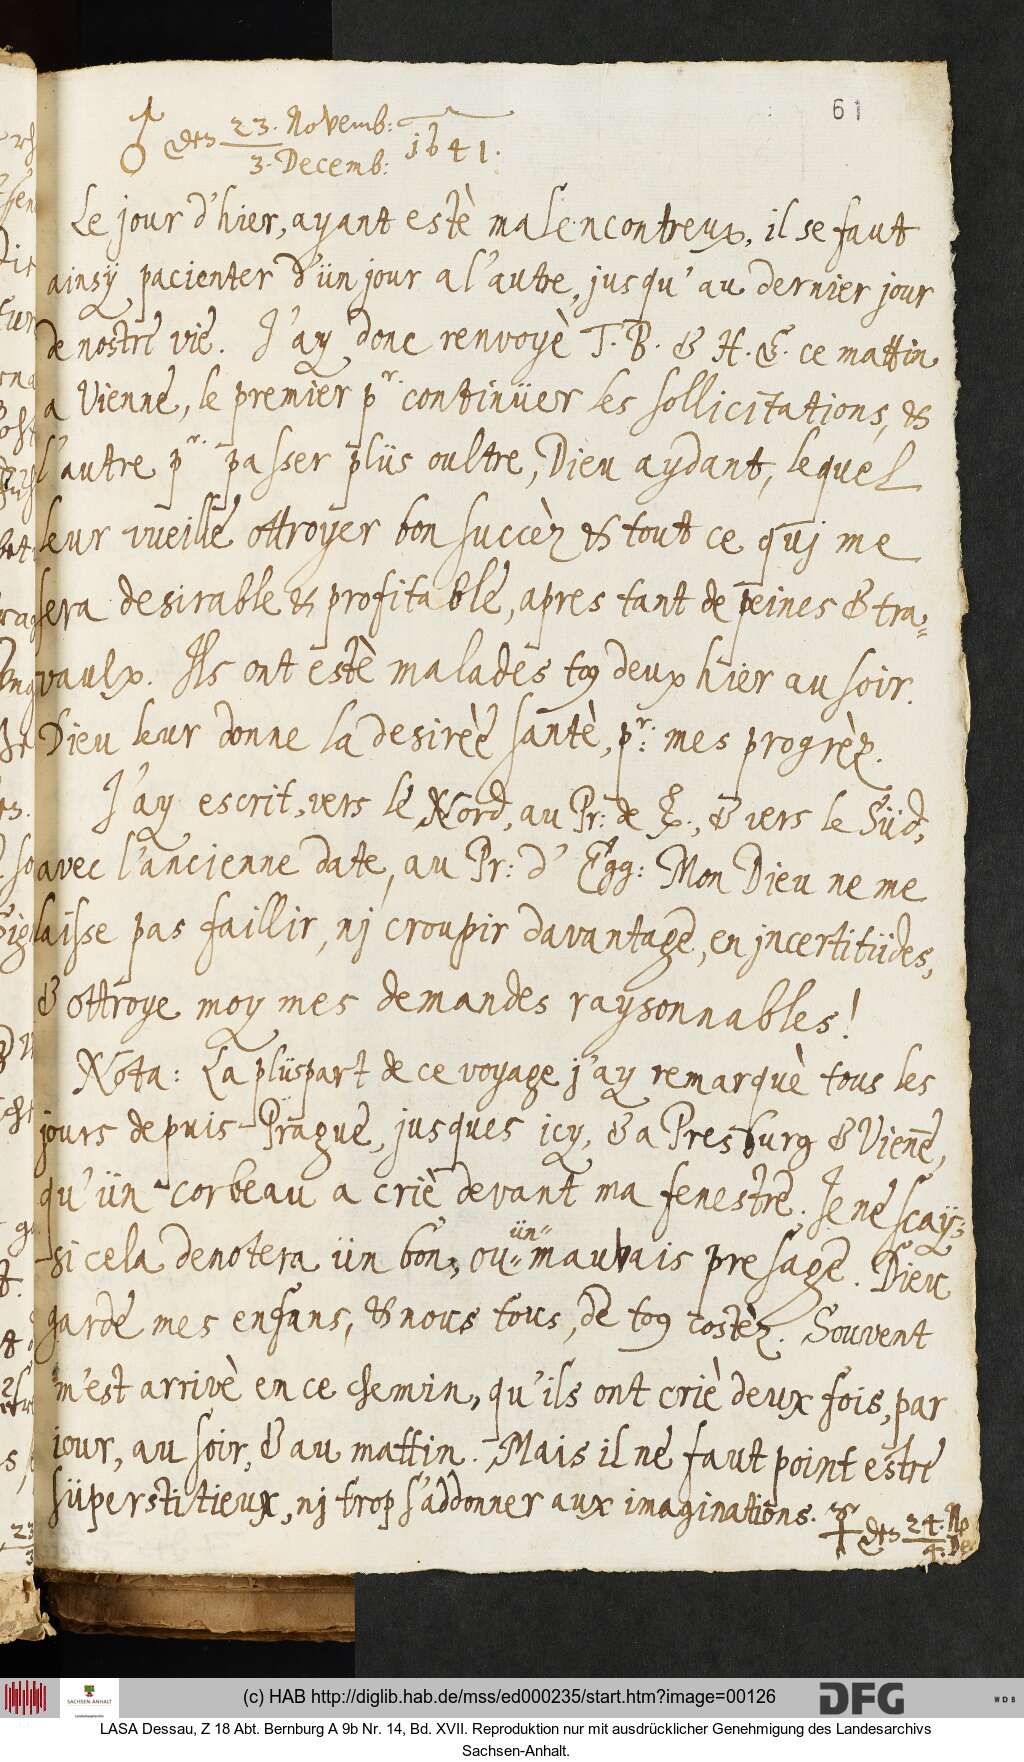 61
♂ den 23. Novemb: / 3. Decemb: 1641.
Le jour d'hier, ayant estè malencontreux, il se faut
ainsÿ pacienter d'ün jour a l'autre, jusqu' au dernier jour
de nostre vie. J'ay donc renvoyè T. B. & H. E. ce mattin
a Vienne, le premier pr. continüer les sollicitations, &
l'autre pr. passer plüs oultre, Dieu aydant, lequel
leur vueille ottroyer bon succèz & tout ce quj me
sera desirable & profitable, apres tant de peines & tra=
vaulx. Ils ont estè malades to9 deux hier au soir.
Dieu leur donne la desirèe santè, pr: mes progrèz.
J'ay escrit, vers le Nord, au Pr: de &, & vers le Süd,
avec l'ancienne date, au Pr: d' Egg: Mon Dieu ne me
laisse pas faillir, nj croupir davantage, en jncertitüdes,
& ottroye moy mes demandes raysonnables!
Nota: La plüspart de ce voyage j'ay remarquè tous les
jours depuis Prague, jusques icy, & a Presburg & Vienne,
qu' ün corbeau a criè devant ma fenestre. Je ne sçaÿ
ün
si cela denotera ün bon, ou mauvais presage. Dieu
garde mes enfans, & nous tous, de to9 costèz. Souvent
m'est arrivè en ce chemin, qu'ils ont criè deux fois, par
jour, au soir, & au mattin. Mais il ne faut point estre
süperstitieux, nj trop s'addonner aux imaginations.
den 24. No / 4. De
(c) HAB http://diglib.hab.de/mss/ed000235/start.htm?image=00126
SACHSEN-ANHALT
DFG
WDB
LASA Dessau, Z 18 Abt. Bernburg A 9b Nr. 14, Bd. XVII. Reproduktion nur mit ausdrücklicher Genehmigung des Landesarchivs
Sachsen-Anhalt.